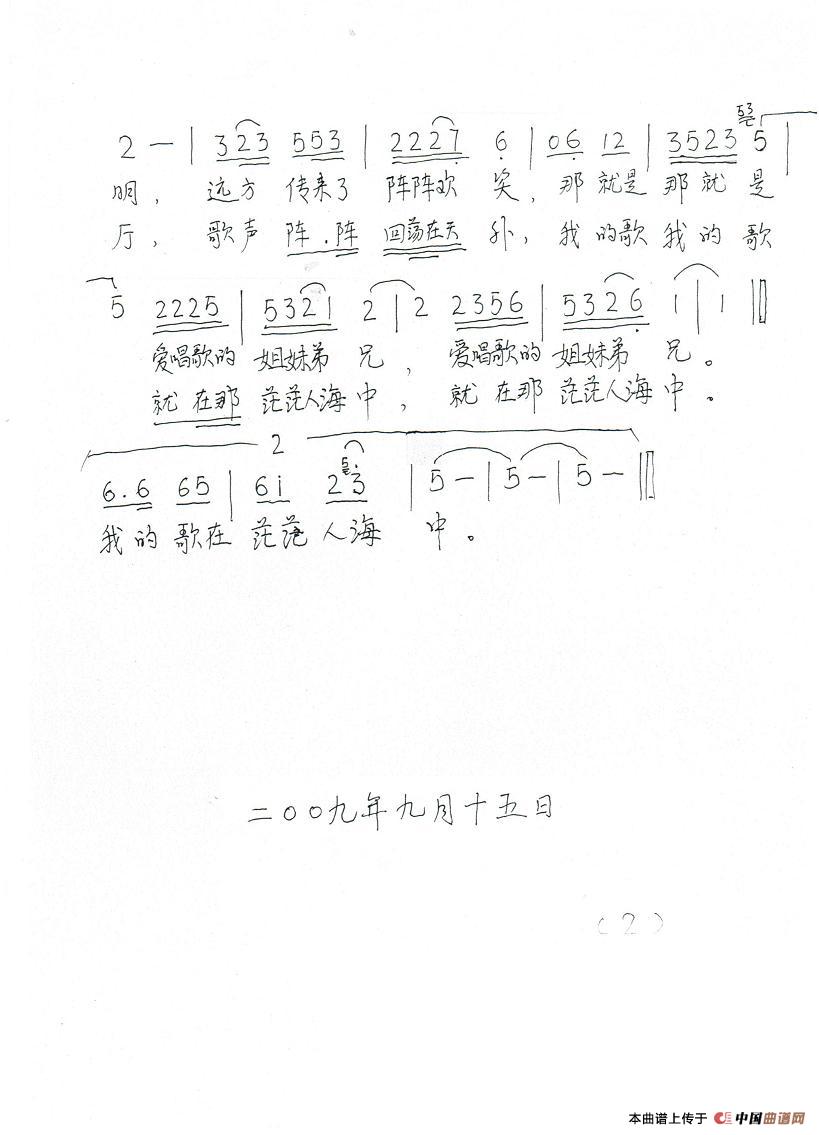 2 — | 323 553 | 2227 6 | 06 12 | 3523 53 5 |
明，远方 传来了 阵阵欢 笑，那 就是 那 就 是
厅，歌声 阵.阵 回荡在天 外，我 的歌 我 的 歌
5 2225 | 5321 2 | 2 2356 | 5326 1 | 1 ‖
爱唱歌的 姐妹弟 兄，爱唱歌的 姐妹弟 兄。
就 在那 茫茫人海 中，就 在那 茫茫人海 中。
2
6.6 65 | 6i 23 | 5 — | 5 — | 5 — ‖
我的 歌在 茫茫 人海 中。
二〇〇九年九月十五日
(2)
本曲谱上传于 中国曲谱网